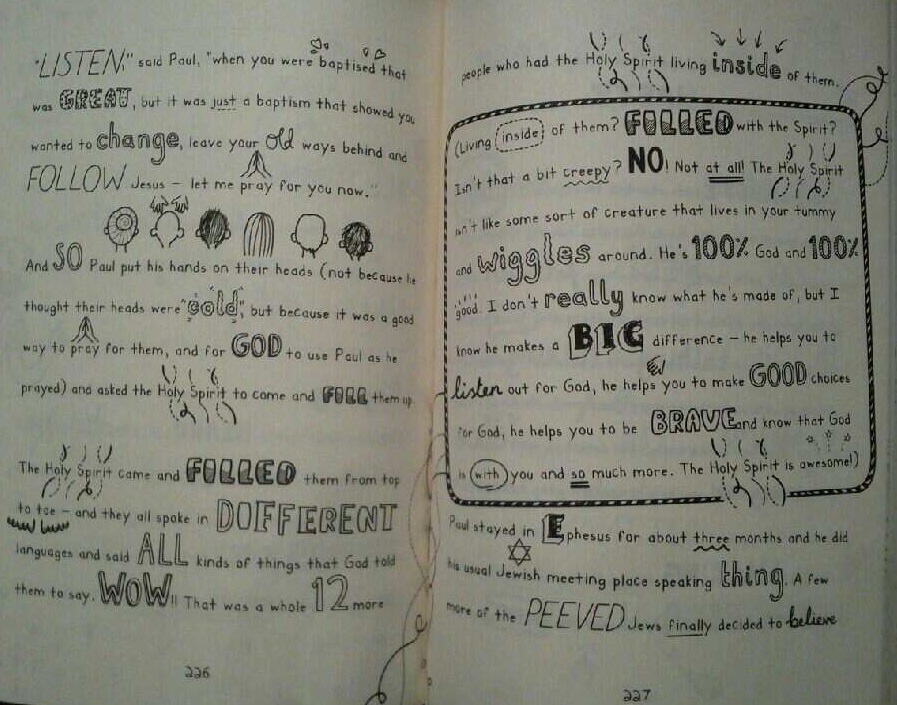 "LISTEN," said Paul, "when you were baptised that
was GREAT, but it was just a baptism that showed you
wanted to change, leave your old ways behind and
FOLLOW Jesus – let me pray for you now."
And SO Paul put his hands on their heads (not because he
thought their heads were "cold", but because it was a good
way to pray for them, and for GOD to use Paul as he
prayed) and asked the Holy Spirit to come and FILL them up.
The Holy Spirit came and FILLED them from top
to toe – and they all spoke in DIFFERENT
languages and said ALL kinds of things that God told
them to say. WOW!! That was a whole 12 more
226
people who had the Holy Spirit living inside of them.
(Living inside of them? FILLED with the Spirit?
Isn't that a bit creepy? NO! Not at all! The Holy Spirit
isn't like some sort of creature that lives in your tummy
and wiggles around. He's 100% God and 100%
good. I don't really know what he's made of, but I
know he makes a BIG difference – he helps you to
listen out for God, he helps you to make GOOD choices
for God, he helps you to be BRAVE and know that God
is with you and so much more. The Holy Spirit is awesome!)
Paul stayed in Ephesus for about three months and he did
his usual Jewish meeting place speaking thing. A few
more of the PEEVED Jews finally decided to believe
227